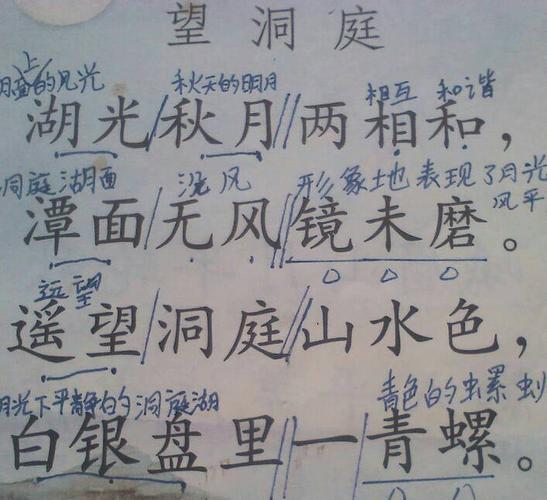 望洞庭
上
湖面的月光 秋天的明月 相互 和谐
湖光/秋月//两相和，
洞庭湖面 没风 形象地表现了月光
风平
潭面/无风//镜未磨。
远望
遥望/洞庭//山水色，
月光下平静的洞庭湖 青色的
白银盘里//一青螺。